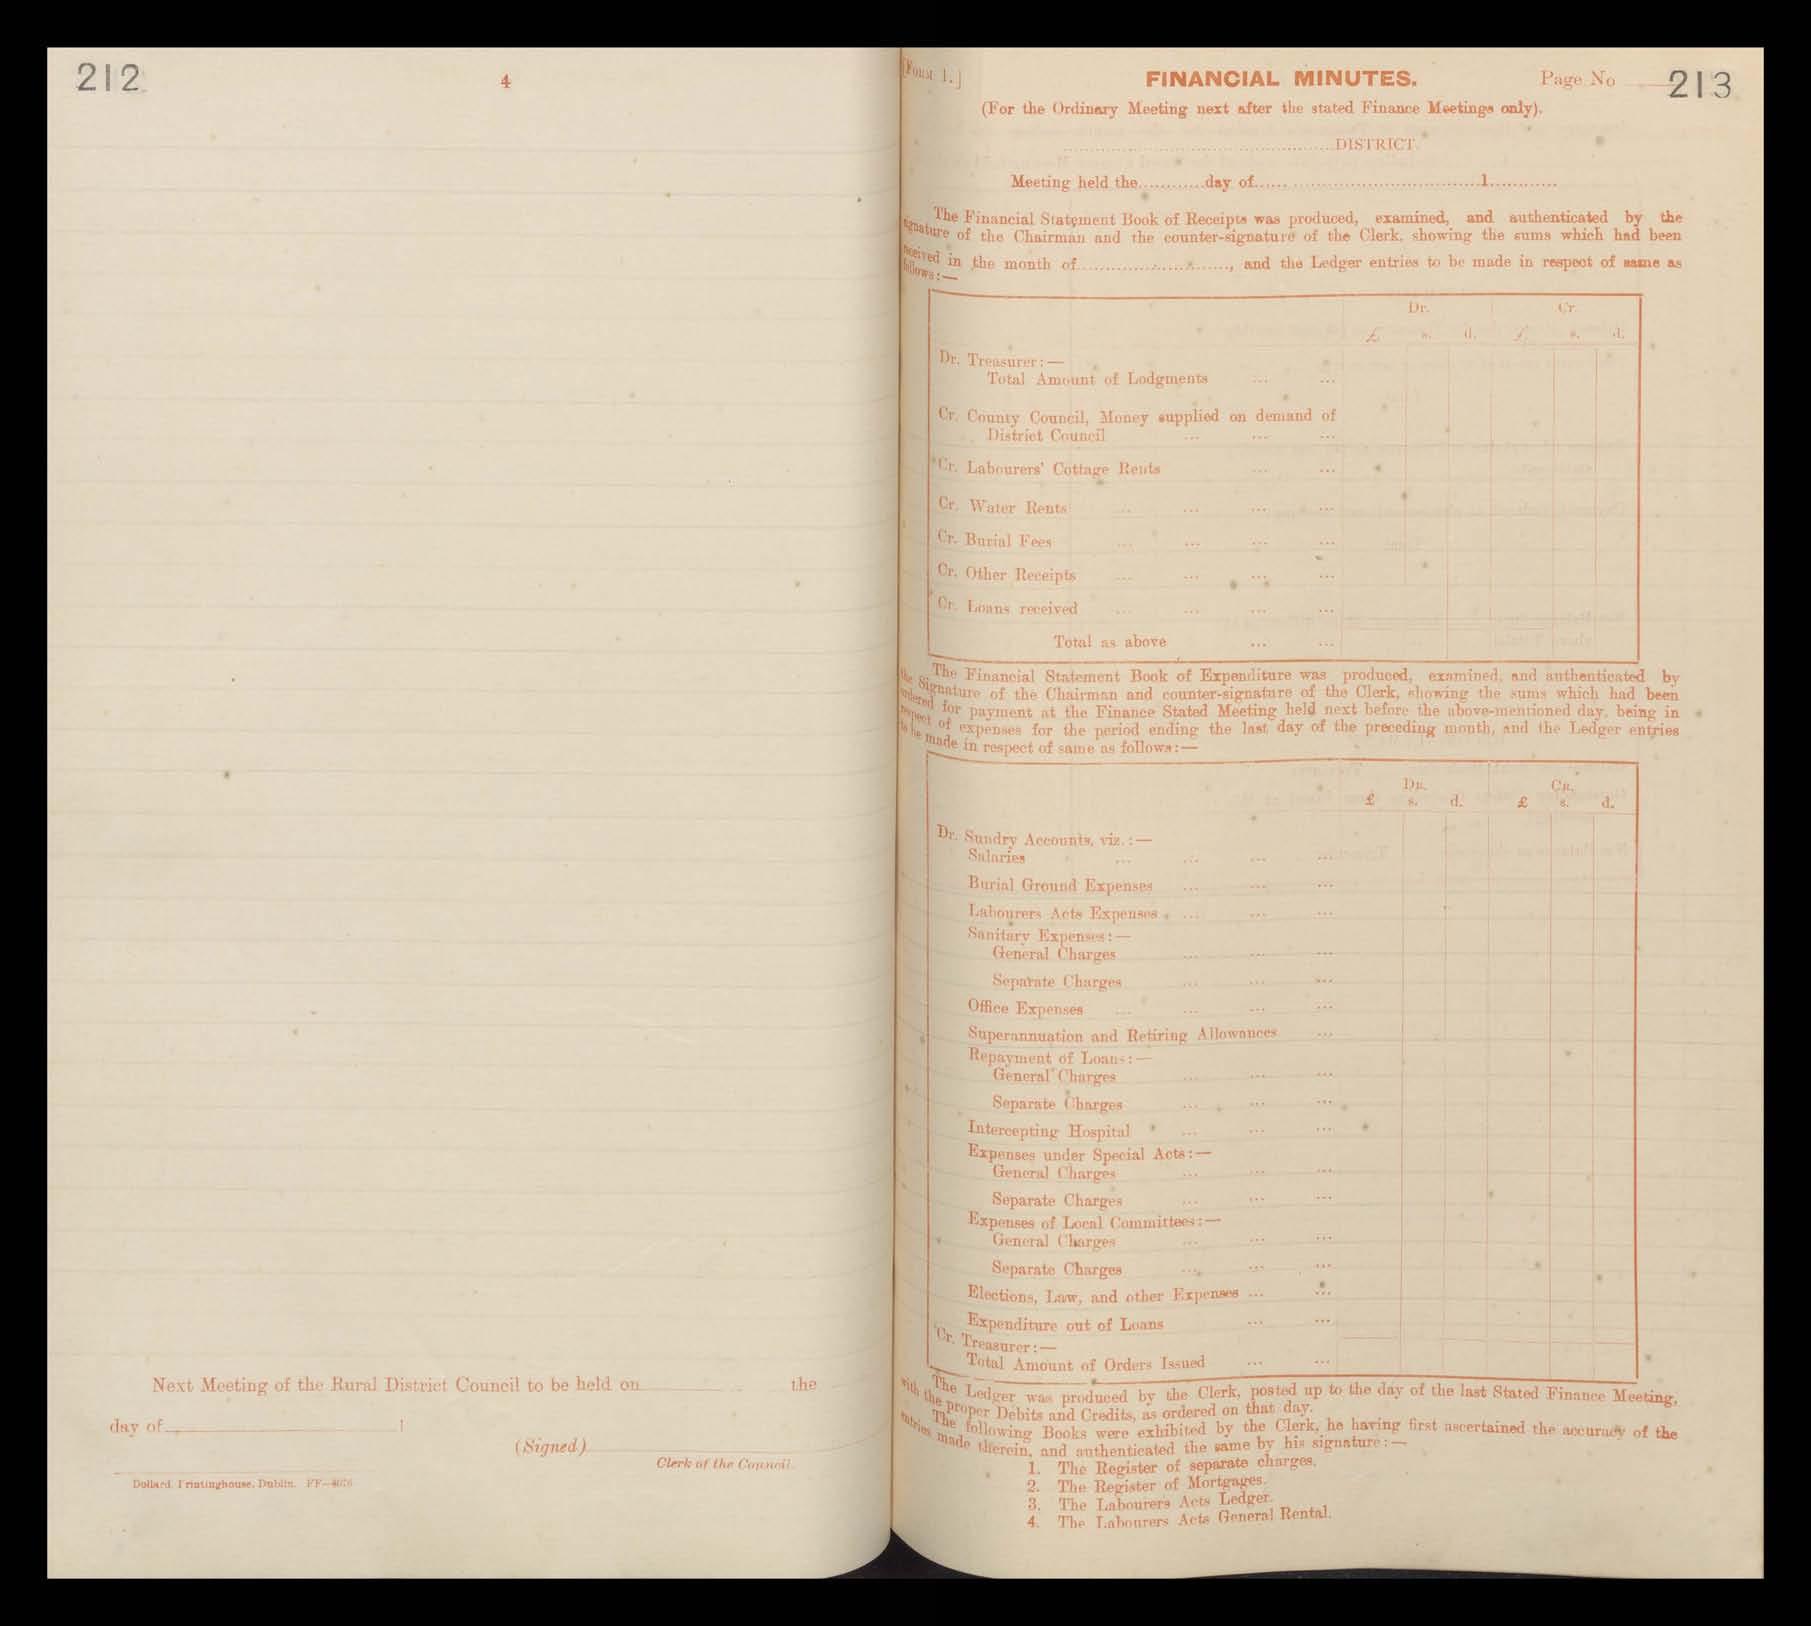 212
4
Next Meeting of the Rural District Council to be held on the
day of 1
(Signed)
Clerk of the Council.
Dollard, Printinghouse, Dublin. FF—
[Form 1.]
FINANCIAL MINUTES.
Page No 213
(For the Ordinary Meeting next after the stated Finance Meetings only).
DISTRICT.
Meeting held the............day of...... ..................................1............
The Financial Statement Book of Receipts was produced, examined, and authenticated by the
signature of the Chairman and the counter-signature of the Clerk, showing the sums which had been
received in the month of............................, and the Ledger entries to be made in respect of same as
follows:—
Dr. Cr.
£ s. d. £ s. d.
Dr. Treasurer:—
Total Amount of Lodgments ... ...
Cr. County Council, Money supplied on demand of
District Council ... ... ...
Cr. Labourers' Cottage Rents ... ...
Cr. Water Rents ... ... ... ...
Cr. Burial Fees ... ... ... ...
Cr. Other Receipts ... ... ... ...
Cr. Loans received ... ... ... ...
Total as above ... ...
The Financial Statement Book of Expenditure was produced, examined, and authenticated by
the Signature of the Chairman and counter-signature of the Clerk, showing the sums which had been
ordered for payment at the Finance Stated Meeting held next before the above-mentioned day, being in
respect of expenses for the period ending the last day of the preceding month, and the Ledger entries
to be made in respect of same as follows:—
Dr. Cr.
£ s. d. £ s. d.
Dr. Sundry Accounts, viz.:—
Salaries ... ... ... ...
Burial Ground Expenses ... ... ...
Labourers Acts Expenses ... ... ...
Sanitary Expenses:—
General Charges ... ... ...
Separate Charges ... ... ...
Office Expenses ... ... ... ...
Superannuation and Retiring Allowances ...
Repayment of Loans:—
General Charges ... ... ...
Separate Charges ... ... ...
Intercepting Hospital ... ... ...
Expenses under Special Acts:—
General Charges ... ... ...
Separate Charges ... ... ...
Expenses of Local Committees:—
General Charges ... ... ...
Separate Charges ... ... ...
Elections, Law, and other Expenses ... ...
Expenditure out of Loans ... ...
Cr. Treasurer:—
Total Amount of Orders Issued ... ...
The Ledger was produced by the Clerk, posted up to the day of the last Stated Finance Meeting,
with the proper Debits and Credits, as ordered on that day.
The following Books were exhibited by the Clerk, he having first ascertained the accuracy of the
entries made therein, and authenticated the same by his signature:—
1. The Register of separate charges.
2. The Register of Mortgages.
3. The Labourers Acts Ledger.
4. The Labourers Acts General Rental.